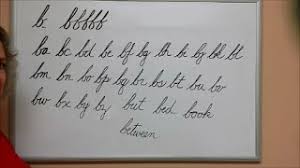 b b b b b b
ba bc bd be bf bg bh bi bj bk bl
bm bn bo bp bq br bs bt bu bv
bw bx by bz but bed book
between